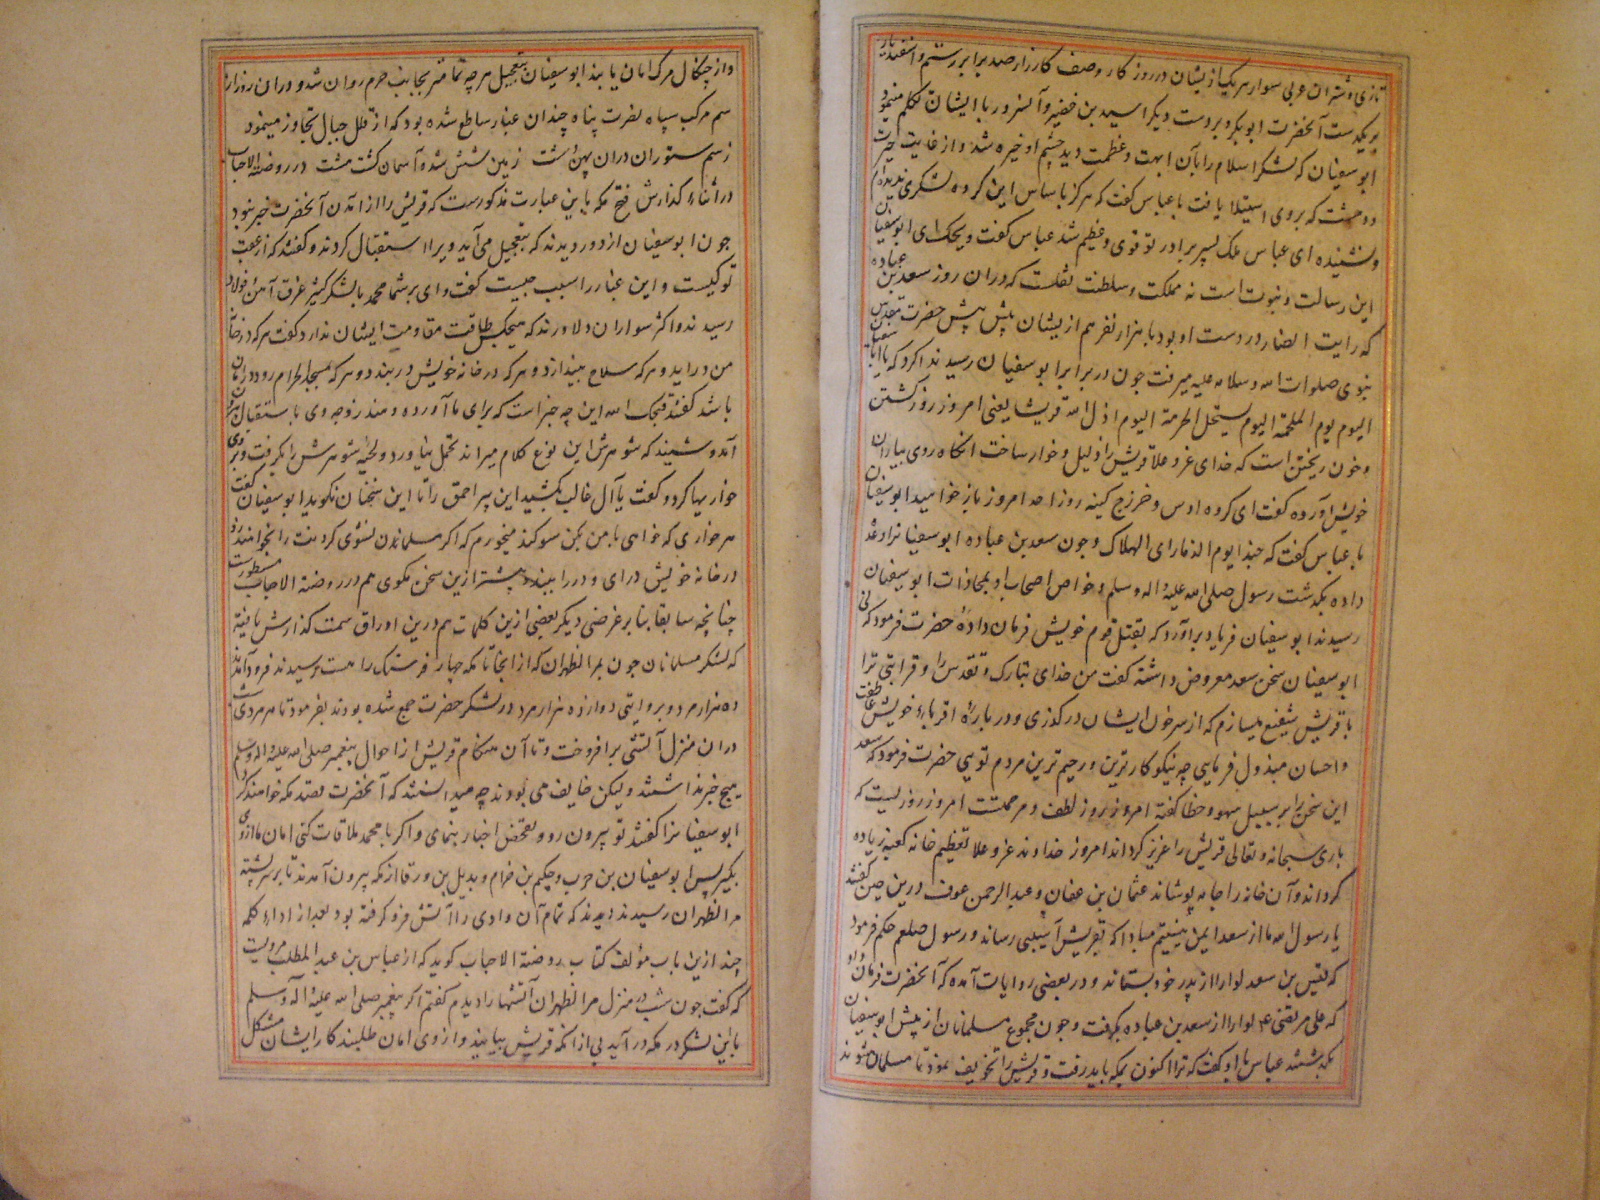 تازی و شتران عربی سوار هر یک از ایشان در روز کار وصف کارزار صد برابر رستم و اسفندیار
بر یکدست آنحضرت ابوبکر و بر دست دیگر اسید بن خضیر و آنسرور با ایشان تکلم مینمود
ابوسفیان که لشکر اسلام را بآن ابهت و عظمت دید چشم او خیره شد و از غایت حیرت
و دهشت که بروی استیلا یافت با عباس گفت که هرگز باساس این گروه لشکری ندیده‌ام
و نشنیده ای عباس ملک پسر برادر تو قوی و عظیم شد عباس گفت ویحک ای ابوسفیان
این رسالت و نبوت است نه مملکت و سلطنت نقلست که در ان روز سعد بن عباده
که رایت انصار در دست او بود با هزار نفر هم از یشان پیش پیش حضرت مقدس
نبوی صلوات الله و سلامه علیه میرفت چون در برابر ابوسفیان رسید ندا کرد که یا ابا سفیان
الیوم یوم الملحمة الیوم یستحل الحرمة الیوم اذل الله قریشا یعنی امروز روز کشتن
و خون ریختن است که خدای عز و علا قریش را ذلیل و خوار ساخت انکاه روی بیاران
خویش آورده گفت ای گروه اوس و خزرج کینه روز احد امروز باز خواهید ابوسفیان
با عباس گفت که حبذا یوم الذمار ای الهلاک و چون سعد بن عباده ابوسفیانرا
داده بکذشت رسول صلی الله علیه و اله و سلم و خواص اصحاب او بمحاذات ابوسفیان
رسیدند ابوسفیان فریاد برآورد که بقتل قوم خویش فرمان دادهٔ حضرت فرمود که نی
ابوسفیان سخن سعد معروض داشته گفت من خدای تبارک و تقدس را و قرابتی ترا
با قریش شفیع میسازم که از سر خون ایشان درگذری و در بارهٔ اقرباء خویش عاطفت
و احسان مبذول فرمایی چه نیکوکارترین و رحیم ترین مردم تویی حضرت فرمود که سعد
این سخن را بر سبیل سهو و خطا گفته امروز روز لطف و مرحمتت امروز روزیست که
باری سبحانه و تعالی قریش را عزیز گرداند امروز خداوند عز و علا تعظیم خانه کعبه زیاده
گرداند و آن خانه را جامه پوشاند عثمان بن عفان و عبدالرحمن عوف درین حین گفتند
یا رسول الله ما از سعد ایمن نیستیم مبادا که بقریش آسیبی رساند و رسول صلعم حکم فرمود
که قیس بن سعد لوا را از پدر خود بستاند و در بعضی روایات آمده که آنحضرت فرمان داد
که علی مرتضی ع لوا را از سعد بن عباده بگرفت و چون مجموع مسلمانان از پیش ابوسفیان
بکذشتند عباس با او گفت که ترا اکنون بمکه باید رفت و قریش را تخویف نمود تا مسلمان شوند
و از چنکال مرک امان یابند ابوسفیان بتعجیل هر چه تمامتر بجانب حرم روان شد و در ان روز از
سم مرکب سپاه نصرت پناه چندان غبار ساطع شده بود که از قلل جبال تجاوز مینمود
ز سم ستوران دران پهن دشت زمین شش شد و آسمان گشت هشت در روضة الاحباب
در اثناء گذارش فتح مکه باین عبارت مذکورست که قریش را از آمدن آنحضرت خبر نبود
چون ابوسفیان از دور دیدند که بتعجیل می‌آید ویرا استقبال کردند و گفتند که از عقب
تو کیست و این غبار را سبب چیست گفت وای بر شما محمد با لشکر کثیر غرق آهن و فولاد
رسیدند و اکثر سواران دلاورند که هیچکس طاقت مقاومت ایشان ندارد گفت هر که در خانه
من دراید و هر که سلاح بیندازد و هر که در خانه خویش در بندد و هر که بمسجد الحرام رود در امان
باشد گفتند قبحک الله این چه خبر است که برای ما آورده و هند زوجه وی باستقبال
آمد و شنید که شوهرش این نوع کلام میراند تحمل نیاورد و لحیه شوهرش را بگرفت و بر وی
خواریها کرد و گفت یا آل غالب بکشید این پیر احمق را تا این سخنان نگوید ابوسفیان گفت
هر خواری که خواهی با من بکن سوکند میخورم که اگر مسلمان نشوی کردنت را بخواهند زد
در خانه خویش درای و در را ببند و پیشتر ازین سخن مکوی هم در روضة الاحباب مسطورست
چنانچه سابقا بنا بر غرضی دیگر بعضی ازین کلمات هم درین اوراق سمت گذارش یافته
که لشکر مسلمانان چون بمر الظهران که از انجا تا مکه چهار فرسنک راهست رسیدند فرود آمدند
ده هزار مرد و بروایتی دوازده هزار مرد در لشکر حضرت جمع شده بودند بفرمود تا هر مردی
دران منزل آتشی برافروخت و تا آن هنکام قریش از احوال پیغمبر صلی الله علیه و اله و سلم
هیچ خبر نداشتند و لیکن خایف می بودند چه میدانستند که آنحضرت قصد مکه خواهند کرد
ابوسفیانرا گفتند تو بیرون رو و تفحص اخبار بنمای و اگر با محمد ملاقات کنی امان ما از وی
بکیر پس ابوسفیان بن حرب و حکیم بن خرام و بدیل بن ورقا از مکه بیرون آمدند تا بر سر پشته
مر الظهران رسیدند دیدند که تمام آن وادی را آتش فرو گرفته بود بعد از اداء کلمه
چند ازین باب مؤلف کتاب روضة الاحباب گوید که از عباس بن عبد المطلب مرویست
که گفت چون شب در منزل مر الظهران آتشها را دیدم گفتم اگر پیغمبر صلی الله علیه و آله و سلم
با این لشکر در مکه در آید بی از انکه قریش بیایند و از وی امان طلبند کار ایشان مشکل